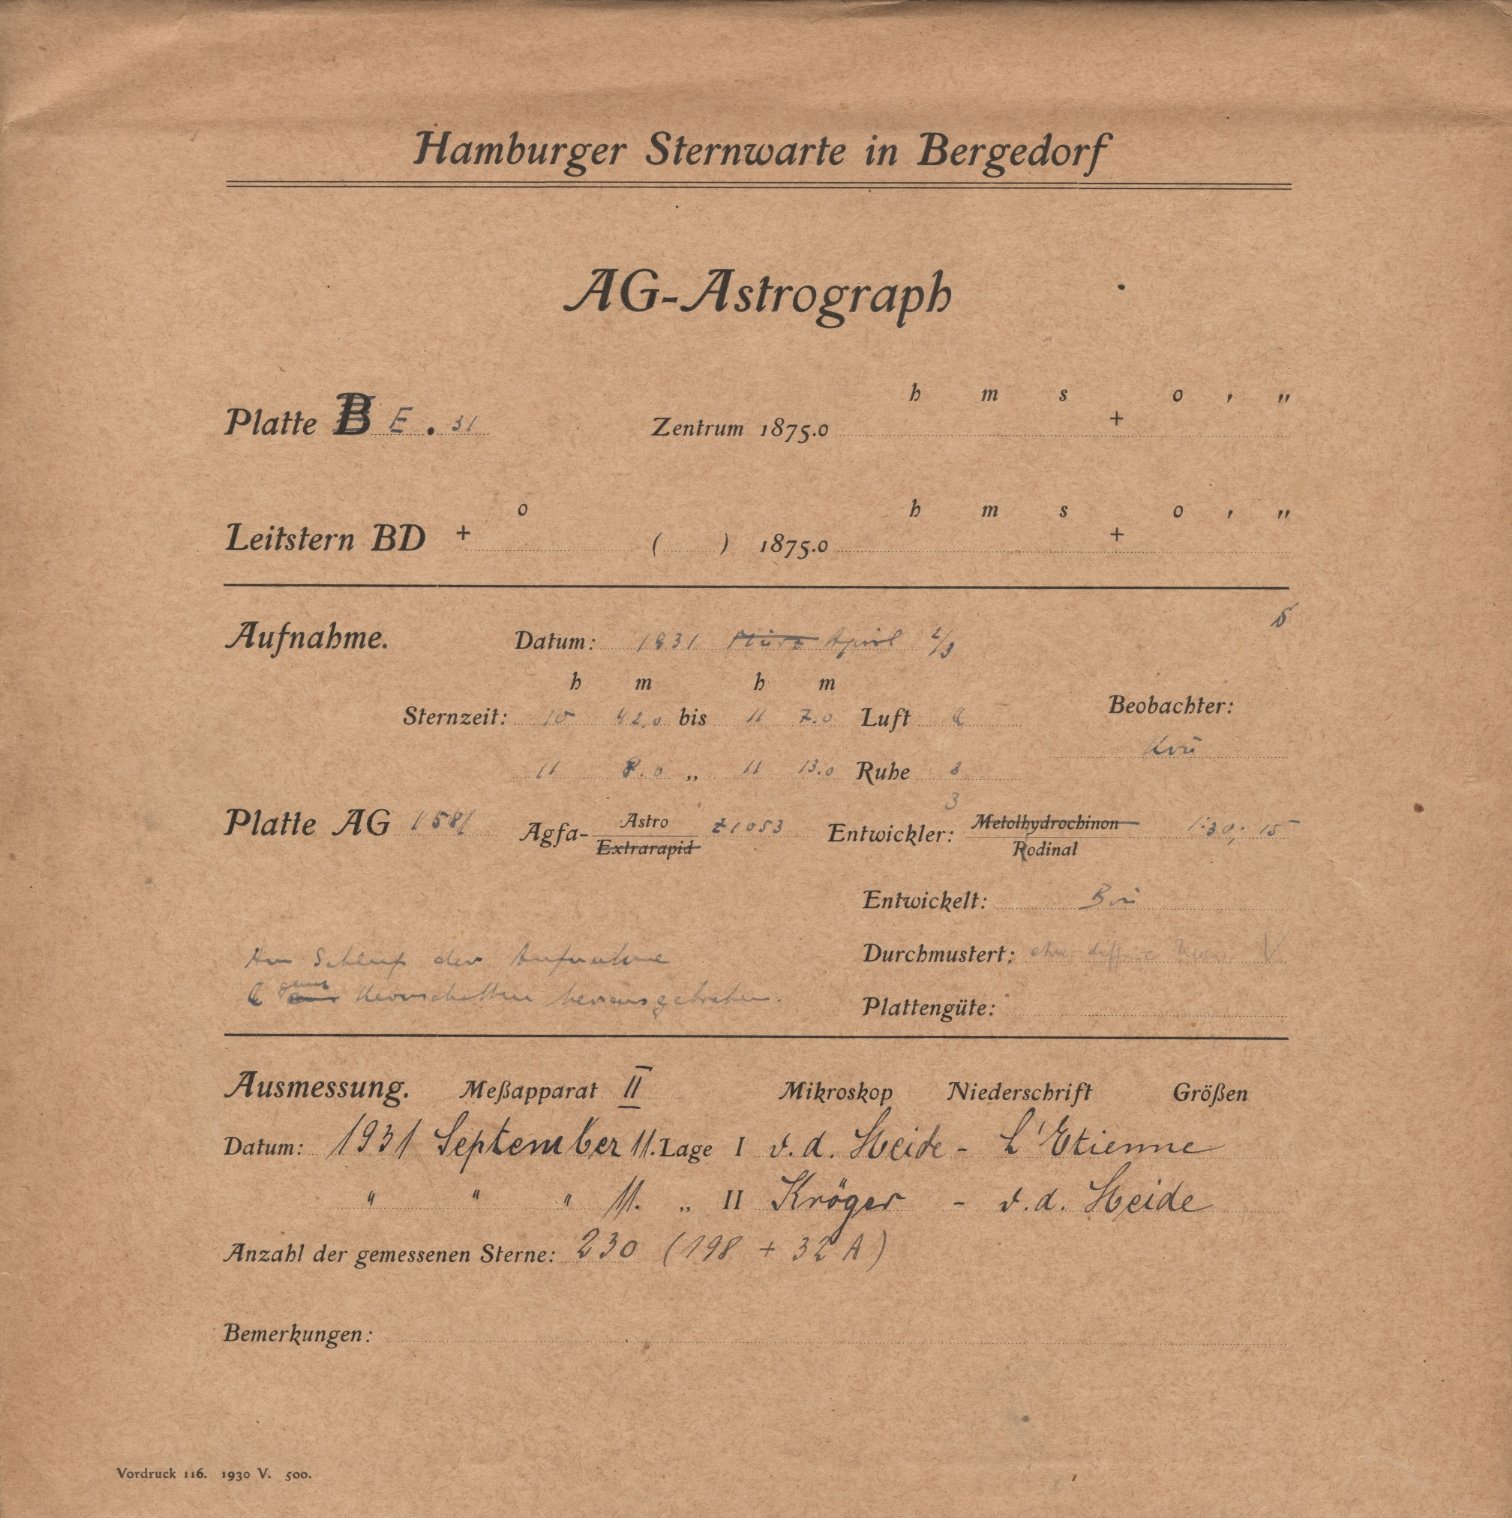 Hamburger Sternwarte in Bergedorf
AG-Astrograph
h m s o ' "
Platte B E . 31 Zentrum 1875.0 +
o h m s o ' "
Leitstern BD + ( ) 1875.0 +
Aufnahme. Datum: 1931 März April 2/3
h m h m
Sternzeit: 10 42.0 bis 11 7.0 Luft Beobachter:
Krü
11 8.0 „ 11 13.0 Ruhe 3
3
Platte AG 1581 Agfa- Astro Extrarapid Z1053 Entwickler: Metolhydrochinon Rodinal 1:30; 15
Entwickelt: Brü
Durchmustert:
Am Schluß der Aufnahme
Kernschatten herausgetreten.
Plattengüte:
Ausmessung. Meßapparat II Mikroskop Niederschrift Größen
Datum: 1931 September 11. Lage I v. d. Heide - L'Etienne
" " " 11. „ II Kröger - v. d. Heide
Anzahl der gemessenen Sterne: 230 (198 + 32 A)
Bemerkungen:
Vordruck 116. 1930 V. 500.